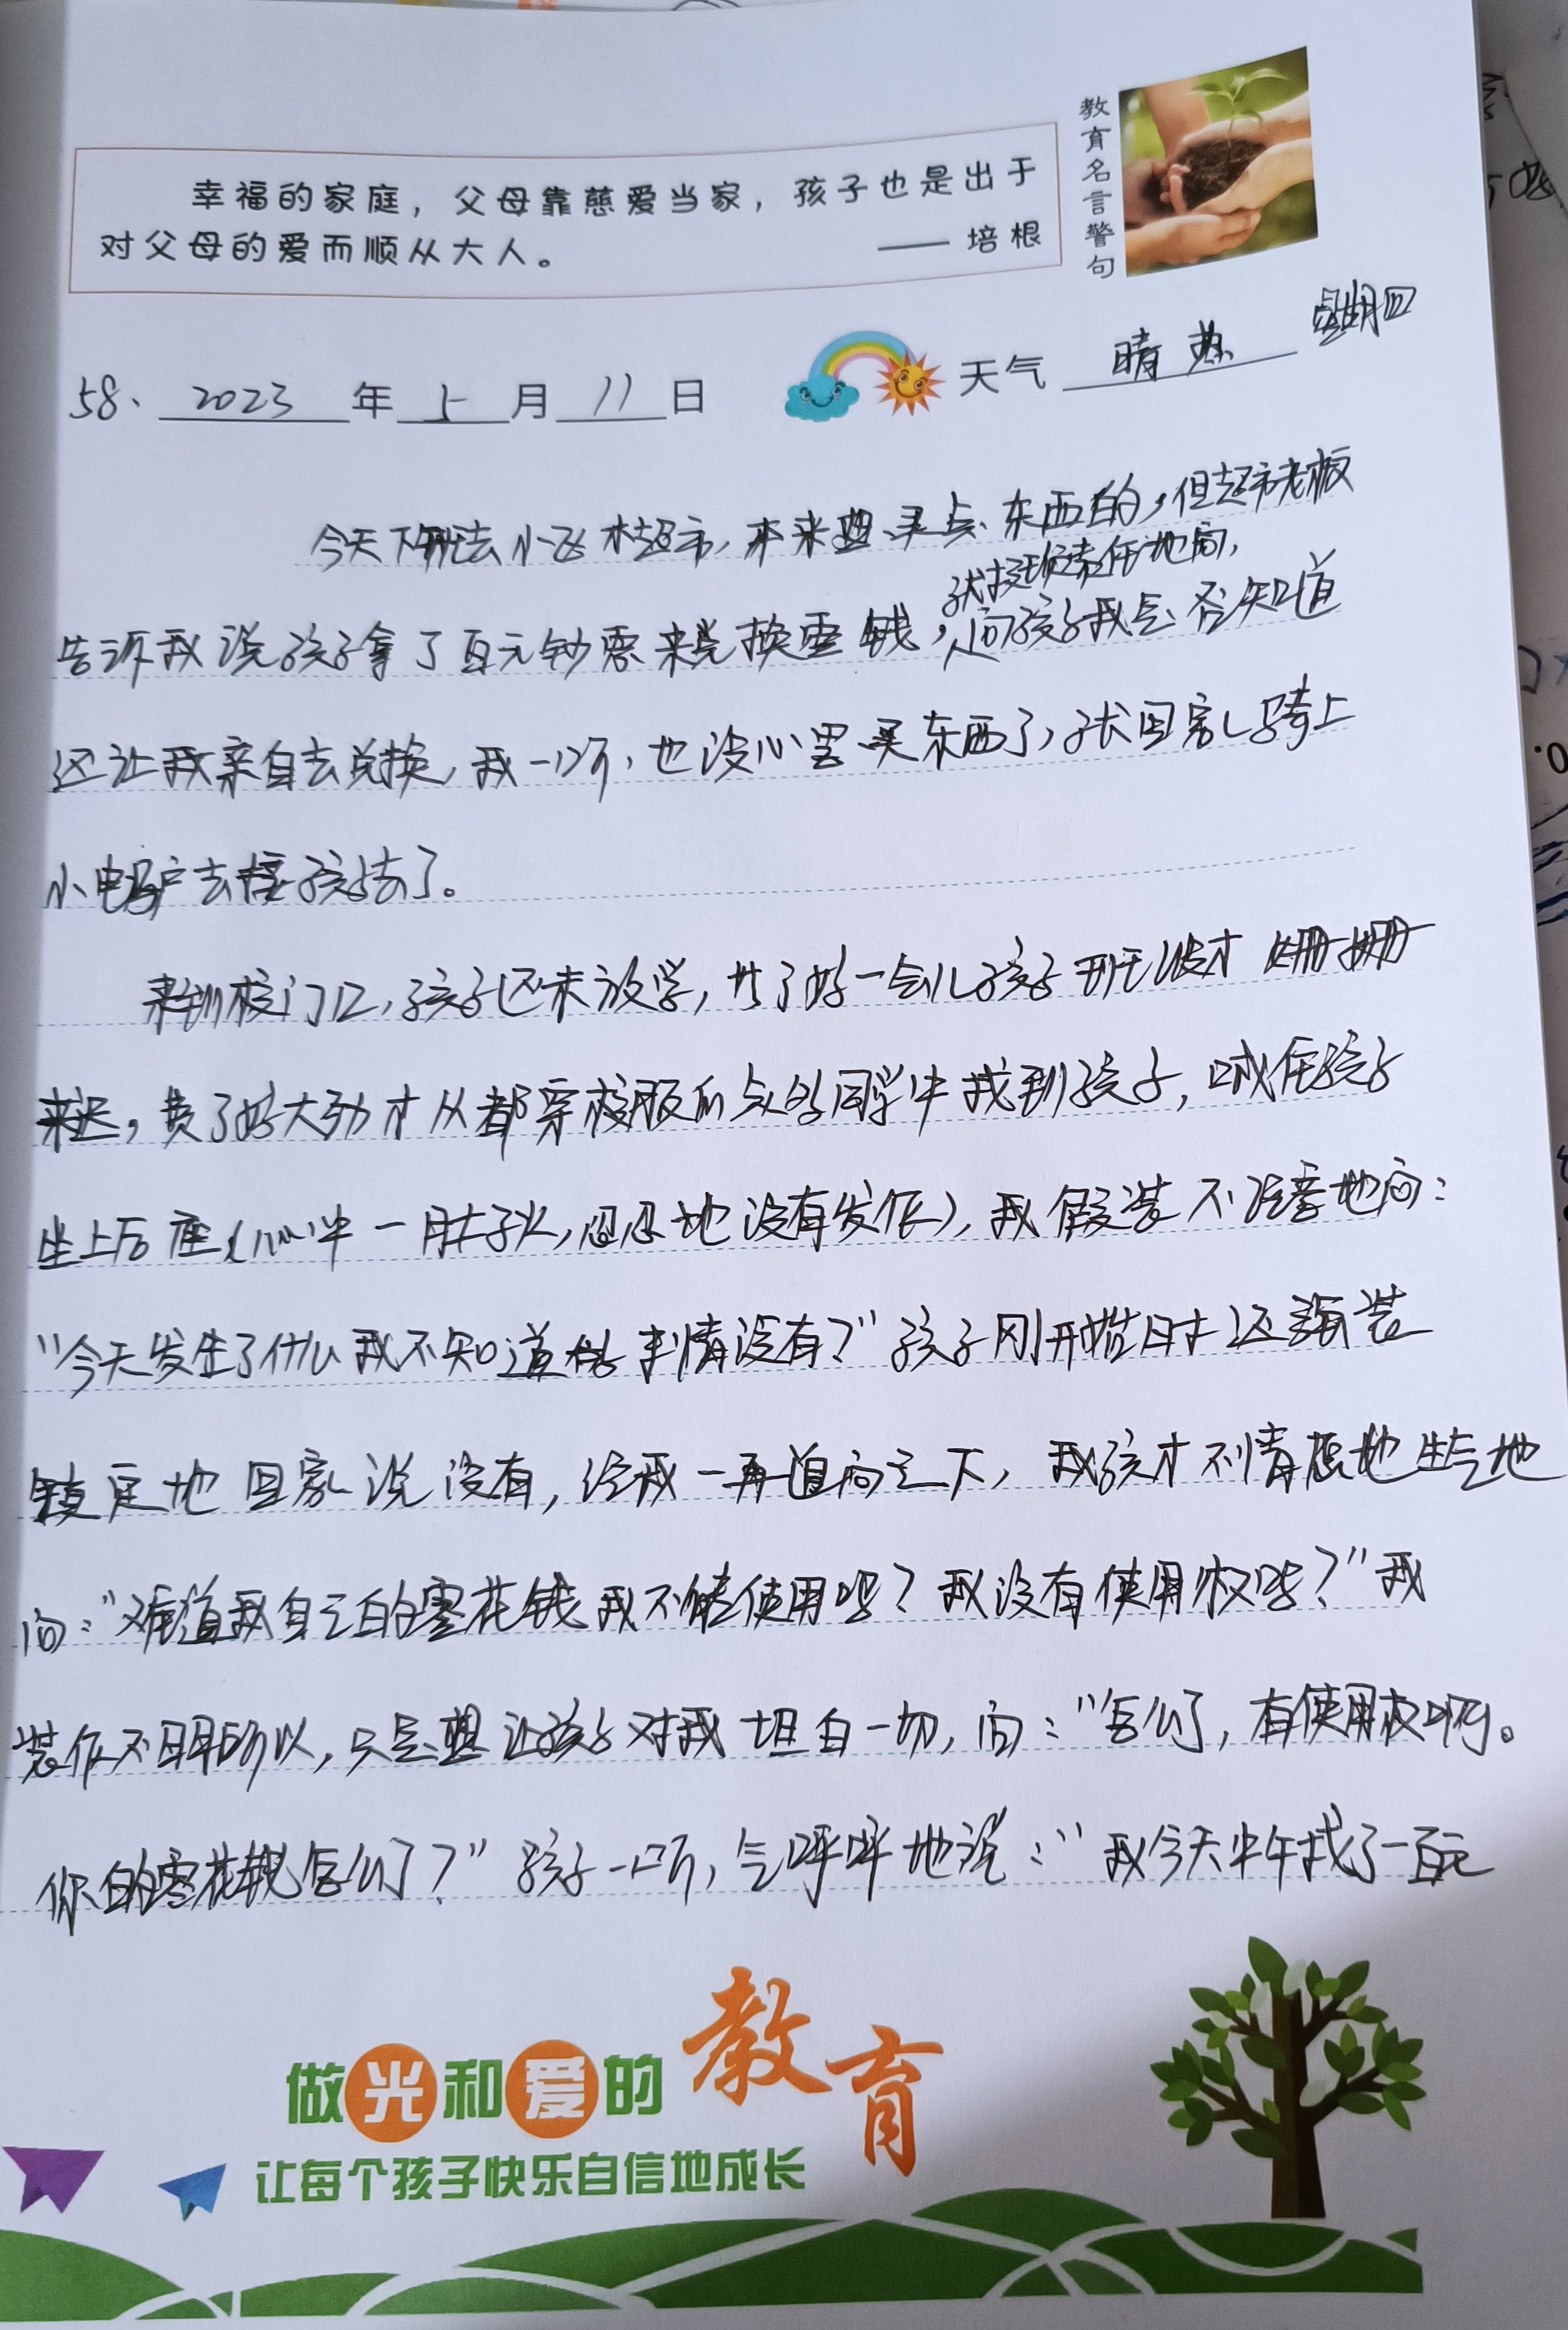 教育名言警句
幸福的家庭，父母靠慈爱当家，孩子也是出于
对父母的爱而顺从大人。 —— 培根
星期四
58、 2023 年 5 月 11 日 天气 晴 热
今天下班去小区超市，本来想买点东西的，但超市老板
就很负责任地问，
告诉我说孩子拿了百元钞票来兑换零钱，问孩子我是否知道
还让我亲自去兑换，我一听，也没心思买东西了，就回家骑上
小电驴去接孩子去了。
来到校门口，孩子还未放学，等了好一会儿孩子班级才姗姗
来迟，费了好大劲才从都穿校服的同学中找到孩子，喊住孩子
坐上后座（心中一肚子火，忍忍地没有发作），我假装不经意地问：
“今天发生了什么我不知道的事情没有？”孩子刚开始时还强装
镇定地回家说没有，经我一再追问之下，我孩才不情愿地生气地
问：“难道我自己的零花钱我不能使用吗？我没有使用权吗？”我
装作不明所以，只是想让孩子对我坦白一切，问：“怎么了，有使用权啊。
你的零花钱怎么了？”孩子一听，气呼呼地说：“我今天中午找了一百元
做光和爱的教育
让每个孩子快乐自信地成长